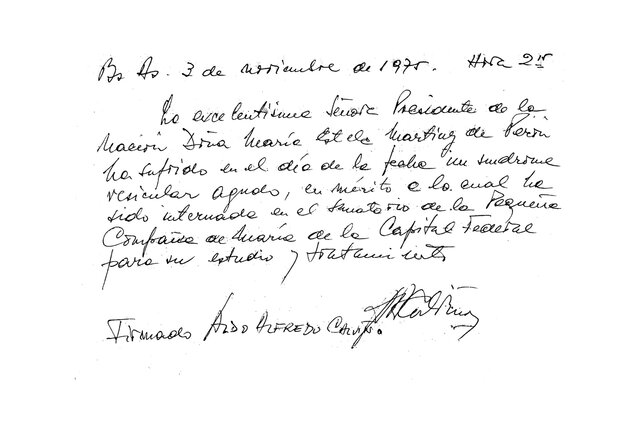 Bs As. 3 de noviembre de 1975. Hora 2¹⁵
La excelentisima Señora Presidente de la
Nación Doña María Estela Martínez de Perón
ha sufrido en el día de la fecha un sindrome
vesicular agudo, en mérito a lo cual ha
sido internada en el Sanatorio de la Pequeña
Compañia de María de la Capital Federal
para su estudio y tratamiento
Firmado ALDO ALFREDO